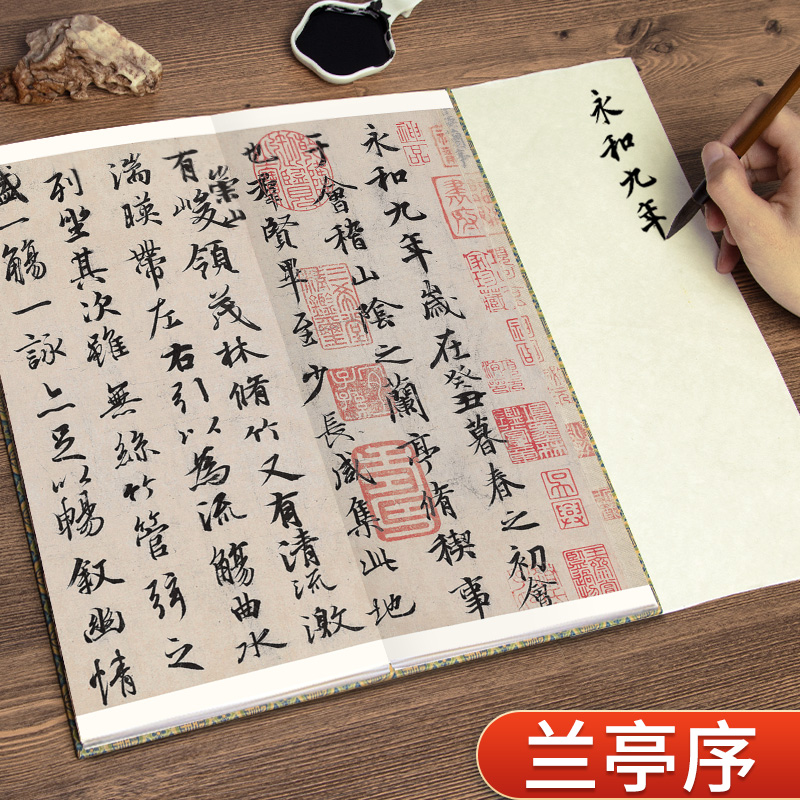 永和九年
永和九年歲在癸丑暮春之初會
于會稽山陰之蘭亭脩稧事
也羣賢畢至少長咸集此地
有崇山峻領茂林脩竹又有清流激
湍暎帶左右引以為流觴曲水
列坐其次雖無絲竹管弦之
盛一觴一詠亦足以暢敘幽情
神品
兰亭序